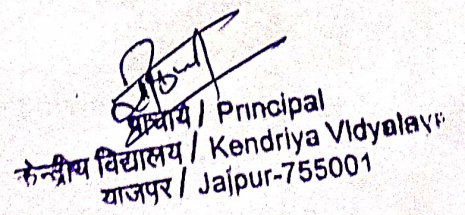 प्राचार्य / Principal
केन्द्रीय विद्यालय / Kendriya Vidyalaya
याजपुर / Jajpur-755001